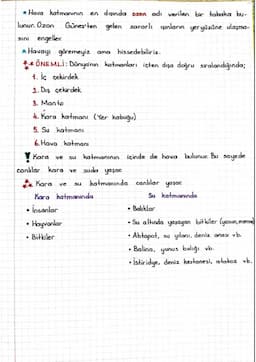 Hava katmanının en dışında ozon adı verilen bir tabaka bu-
lunur. Ozon Güneş'ten gelen zararlı ışınların yeryüzüne ulaşma-
sını engeller.
Havayı göremeyiz ama hissedebiliriz.
ÖNEMLİ: Dünya'nın katmanları içten dışa doğru sıralandığında;
1. İç çekirdek
2. Dış çekirdek
3. Manto
4. Kara katmanı (Yer kabuğu)
5. Su katmanı
6. Hava katmanı
! Kara ve su katmanının içinde de hava bulunur. Bu sayede
canlılar kara ve suda yaşar.
Kara ve su katmanında canlılar yaşar.
Kara katmanında Su katmanında
• İnsanlar • Balıklar
• Hayvanlar • Su altında yaşayan bitkiler (yosun,
• Bitkiler • Ahtapot, su yılanı, deniz anası vb.
• Balina, yunus balığı vb.
• İstiridye, deniz kestanesi, ıstakoz vb.